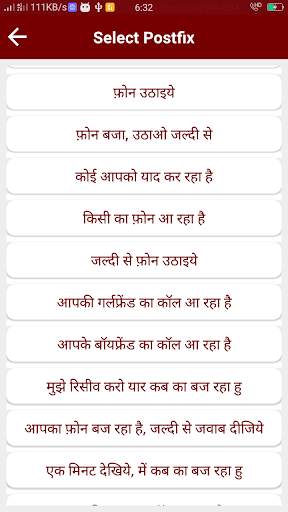 111KB/s 6:32
Select Postfix
फ़ोन उठाइये
फ़ोन बजा, उठाओ जल्दी से
कोई आपको याद कर रहा है
किसी का फ़ोन आ रहा है
जल्दी से फ़ोन उठाइये
आपकी गर्लफ्रेंड का कॉल आ रहा है
आपके बॉयफ्रेंड का कॉल आ रहा है
मुझे रिसीव करो यार कब का बज रहा हु
आपका फ़ोन बज रहा है, जल्दी से जवाब दीजिये
एक मिनट देखिये, में कब का बज रहा हु